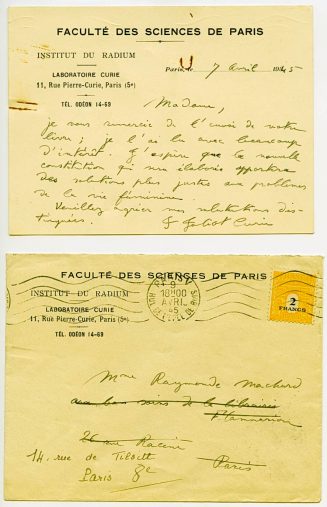 FACULTÉ DES SCIENCES DE PARIS
INSTITUT DU RADIUM
LABORATOIRE CURIE
11, Rue Pierre-Curie, Paris (5e)
TÉL. ODÉON 14-69
Paris, le 7 Avril 1945
Madame,
je vous remercie de l'envoi de votre
livre; je l'ai lu avec beaucoup
d'intérêt. J'espère que la nouvelle
constitution qui sera élaborée apportera
des solutions plus justes aux problèmes
de la vie féminine.
Veuillez agréer mes salutations dis-
tinguées.
Joliot Curie
FACULTÉ DES SCIENCES DE PARIS
INSTITUT DU RADIUM
LABORATOIRE CURIE
11, Rue Pierre-Curie, Paris (5e)
TÉL. ODÉON 14-69
PARIS V
9
18H00
AVRIL
45
2
FRANCS
Mme Raymonde Machard
aux bons soins de la librairie
Flammarion
26 rue Racine
Paris
14, rue de Tilsitt
Paris 8e